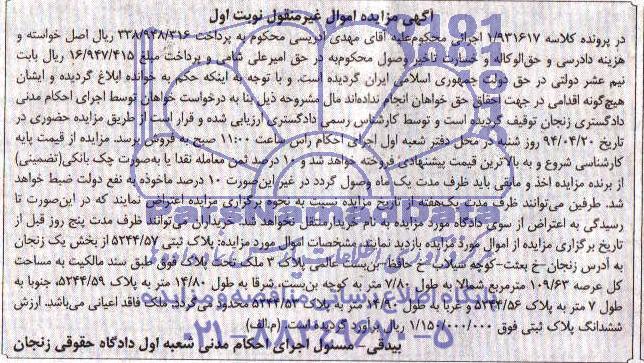 آگهی مزایده اموال غیرمنقول نوبت اول
در پرونده کلاسه ۱/۹۳۱۶۱۷ اجرائی محکوم‌علیه آقای مهدی ادریسی محکوم به پرداخت ۳۳۸/۹۳۸/۳۱۶ ریال اصل خواسته و
هزینه دادرسی و حق‌الوکاله و خسارت تاخیر وصول محکوم‌به در حق امیرعلی شامی و پرداخت مبلغ ۱۶/۹۴۷/۴۱۵ ریال بابت
نیم عشر دولتی در حق دولت جمهوری اسلامی ایران گردیده است. و با توجه به اینکه حکم به خوانده ابلاغ گردیده و ایشان
هیچ‌گونه اقدامی در جهت احقاق حق خواهان انجام نداده‌اند مال مشروحه ذیل بنا به درخواست خواهان توسط اجرای احکام مدنی
دادگستری زنجان توقیف گردیده است و توسط کارشناس رسمی دادگستری ارزیابی شده و قرار است از طریق مزایده حضوری در
تاریخ ۹۴/۰۴/۲۰ روز شنبه در محل دفتر شعبه اول اجرای احکام راس ساعت ۱۱:۰۰ صبح به فروش برسد. مزایده از قیمت پایه
کارشناسی شروع و به بالاترین قیمت پیشنهادی فروخته خواهد شد و ۱۰ درصد ثمن معامله نقدا یا به‌صورت چک بانکی(تضمینی)
از برنده مزایده اخذ و مابقی باید ظرف مدت یک‌ماه وصول گردد در غیر این‌صورت ۱۰ درصد ماخوذه به نفع دولت ضبط خواهد
شد. طرفین می‌توانند ظرف مدت یک‌هفته از تاریخ مزایده نسبت به نحوه برگزاری مزایده اعتراض نمایند که در این‌صورت تا
رسیدگی به اعتراض از سوی دادگاه مورد مزایده به نام خریدار منتقل نخواهد شد. خریداران می‌توانند ظرف مدت پنج روز قبل از
تاریخ برگزاری مزایده از اموال مورد مزایده بازدید نمایند. مشخصات اموال مورد مزایده: پلاک ثبتی ۵۲۴۴/۵۷ از بخش یک زنجان
به آدرس زنجان-خ بعثت-کوچه تنیلاب-خ حافظ-بن‌بست عالمی پلاک ۳ ملک تحت پلاک فوق طبق سند مالکیت به مساحت
کل عرصه ۱۰۹/۶۳ مترمربع شمالا به طول ۷/۸۰ متر به کوچه بن‌بست. شرقا به طول ۱۴/۸۰ متر به پلاک ۵۲۴۴/۵۹، جنوبا به
طول ۷ متر به پلاک ۵۲۴۴/۵۶ و غربا به طول ۱۴/۹۰ متر به پلاک ۵۲۴۴/۵۲ محدود می‌گردد. ملک فاقد اعیانی می‌باشد. ارزش
ششدانگ پلاک ثبتی فوق ۱/۱۵۰/۰۰۰/۰۰۰ ریال برآورد گردیده است. (م.الف)
بیدقی- مسئول اجرای احکام مدنی شعبه اول دادگاه حقوقی زنجان